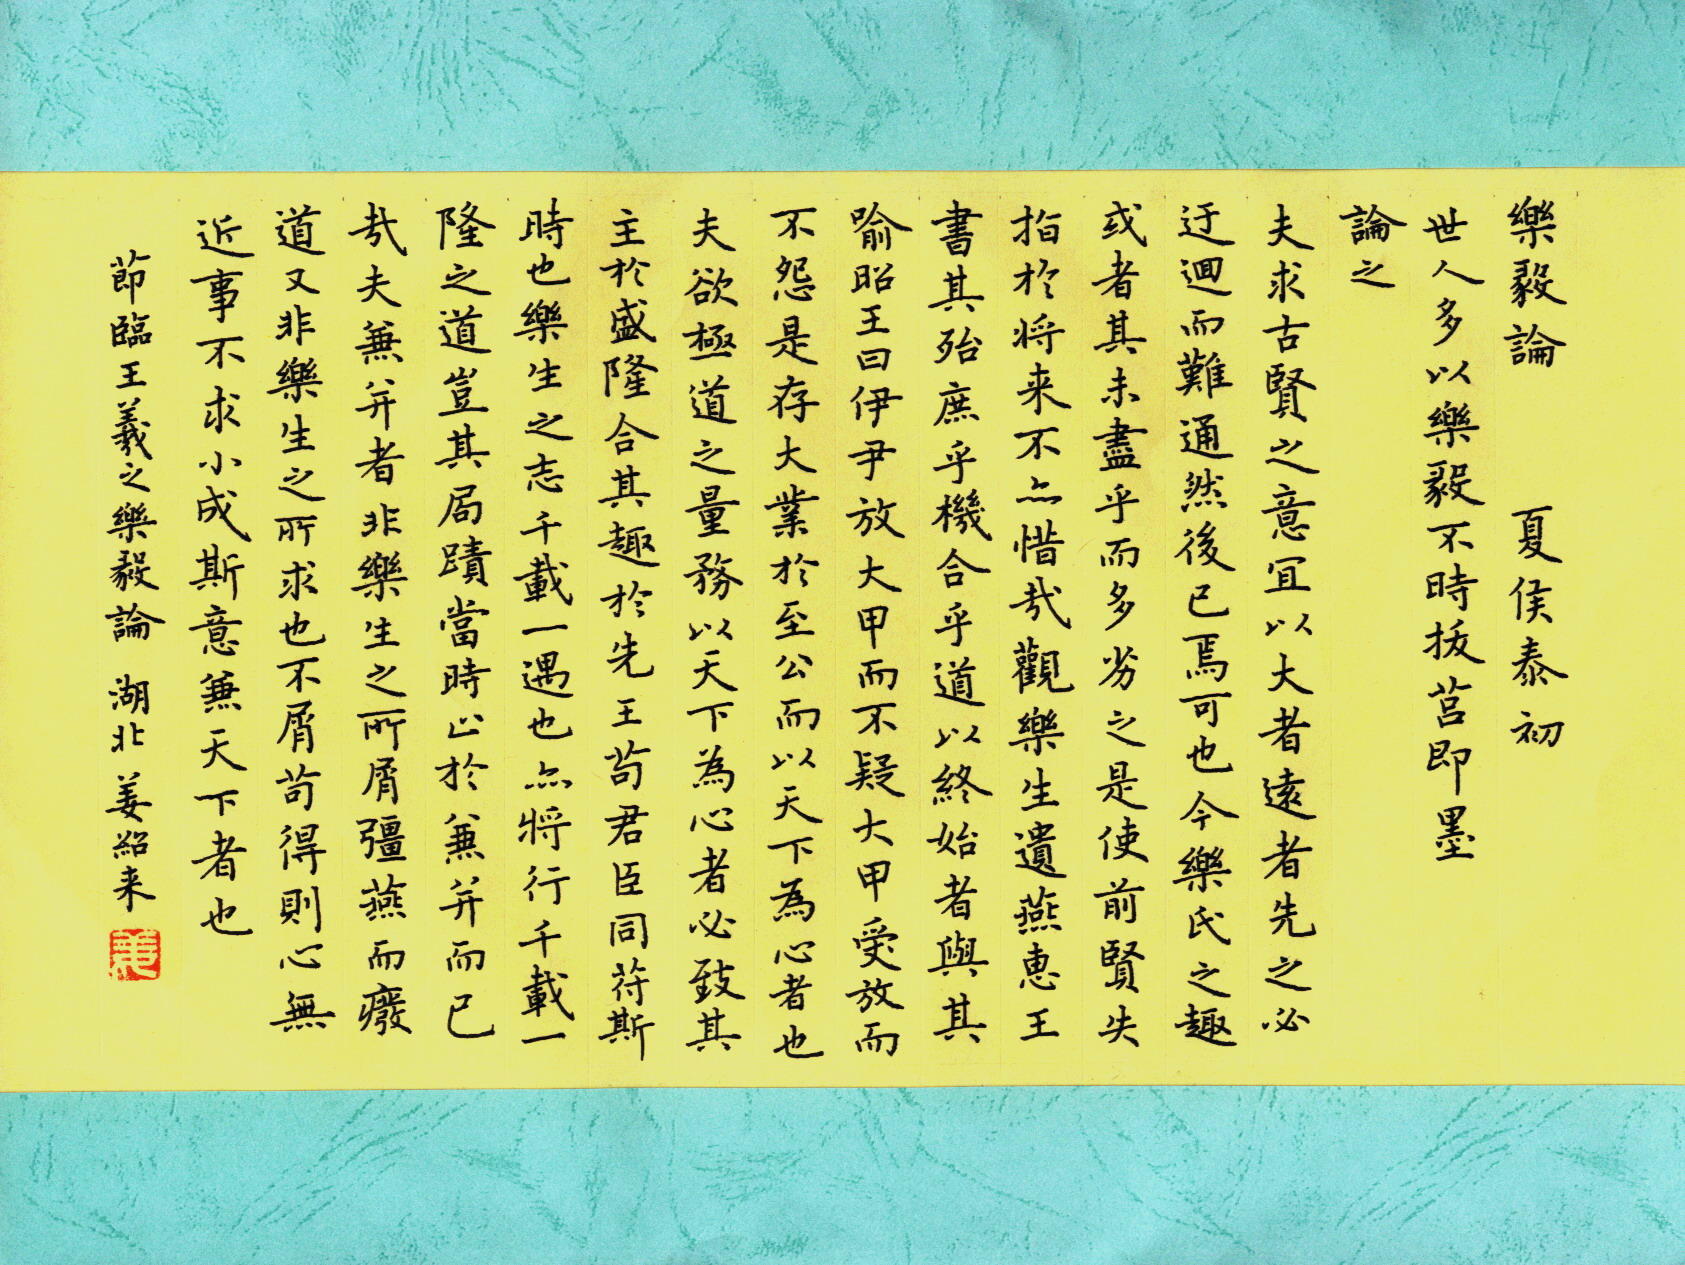 樂毅論 夏侯泰初
世人多以樂毅不時拔莒即墨
論之
夫求古賢之意宜以大者遠者先之必
迂迴而難通然後已焉可也今樂氏之趣
或者其未盡乎而多劣之是使前賢失
指於將来不亦惜哉觀樂生遺燕惠王
書其殆庶乎機合乎道以終始者與其
喻昭王曰伊尹放大甲而不疑大甲受放而
不怨是存大業於至公而以天下為心者也
夫欲極道之量務以天下為心者必致其
主於盛隆合其趣於先王苟君臣同苻斯
時也樂生之志千載一遇也亦將行千載一
隆之道豈其局蹟當時止於兼并而已
哉夫兼并者非樂生之所屑彊燕而癈
道又非樂生之所求也不屑苟得則心無
近事不求小成斯意兼天下者也
節臨王羲之樂毅論 湖北姜紹来
姜